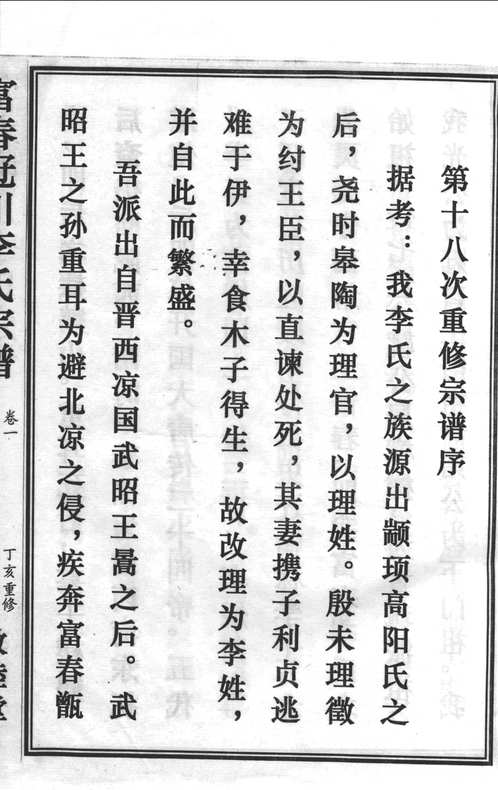 第十八次重修宗谱序
据考：我李氏之族源出颛顼高阳氏之
后，尧时皋陶为理官，以理姓。殷未理徵
为纣王臣，以直谏处死，其妻携子利贞逃
难于伊，幸食木子得生，故改理为李姓，
并自此而繁盛。
吾派出自晋西凉国武昭王暠之后。武
昭王之孙重耳为避北凉之侵，疾奔富春甑
李氏宗谱
卷一
丁亥重修